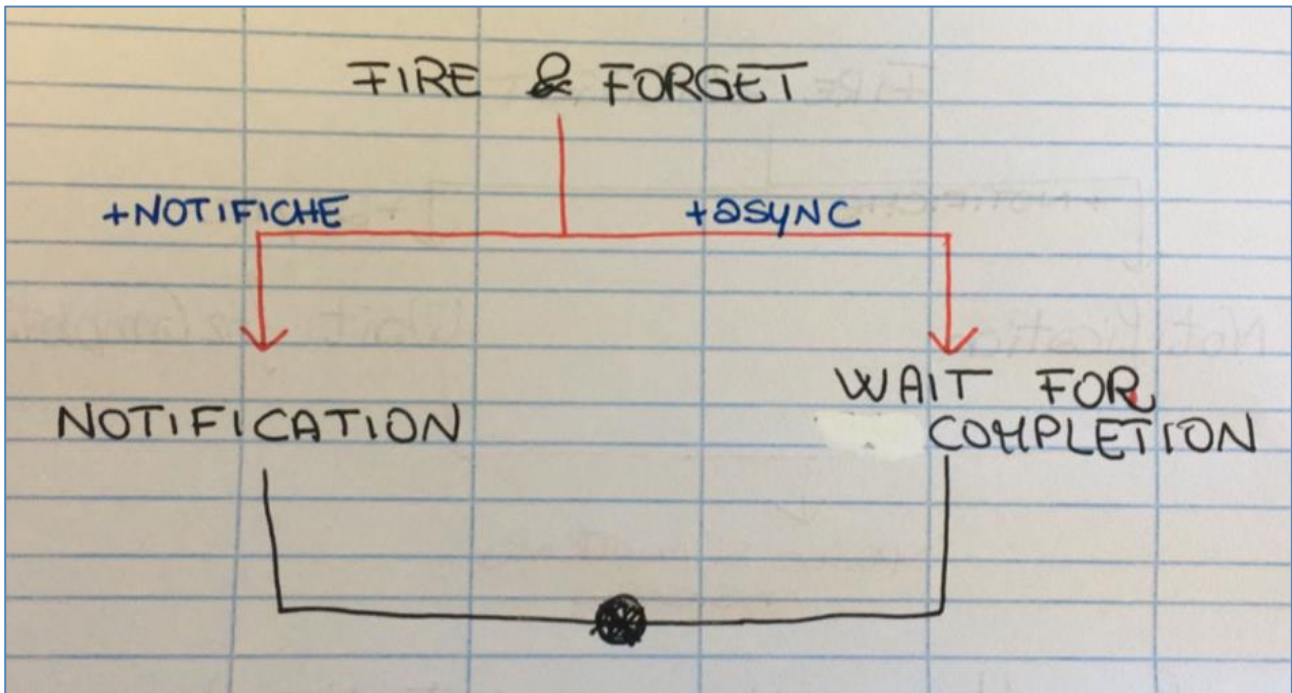 FIRE & FORGET
+NOTIFICHE
+async
NOTIFICATION
WAIT FOR
COMPLETION